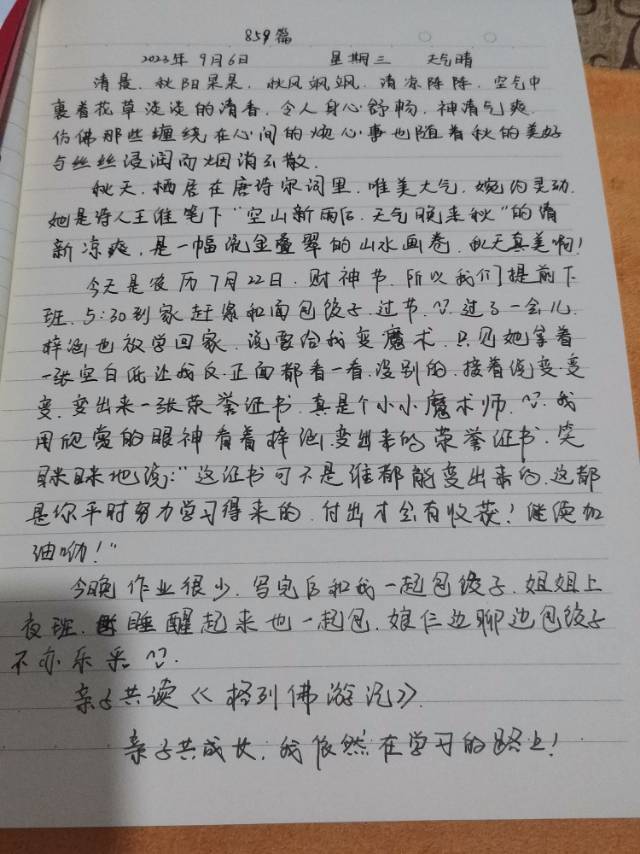 859篇
2023年9月6日 星期三 天气晴
清晨,秋阳杲杲,秋风飒飒,清凉阵阵,空气中
裹着花草淡淡的清香,令人身心舒畅,神清气爽.
仿佛那些缠绕在心间的烦心事也随着秋的美好
与丝丝浸润而烟消云散.
秋天,栖居在唐诗宋词里,唯美大气,婉约灵动.
她是诗人王维笔下“空山新雨后,天气晚来秋”的清
新凉爽,是一幅流金叠翠的山水画卷,秋天真美啊!
今天是农历7月22日,财神节,所以我们提前下
班,5:30到家赶紧和面包饺子,过节,过了一会儿
梓涵也放学回家,说要给我变魔术,只见她拿着
一张空白纸让我反.正面都看一看,没别的,接着说变变
变,变出来一张荣誉证书,真是个小小魔术师,我
用欣赏的眼神看着梓涵变出来的荣誉证书,笑
眯眯地说:“这证书可不是谁都能变出来的,这都
是你平时努力学习得来的,付出才会有收获!继续加
油呦!”
今晚作业很少,写完后和我一起包饺子,姐姐上
夜班,睡醒起来也一起包,娘仨边聊边包饺子
不亦乐乎.
亲子共读《格列佛游记》.
亲子共成长,我依然在学习的路上!